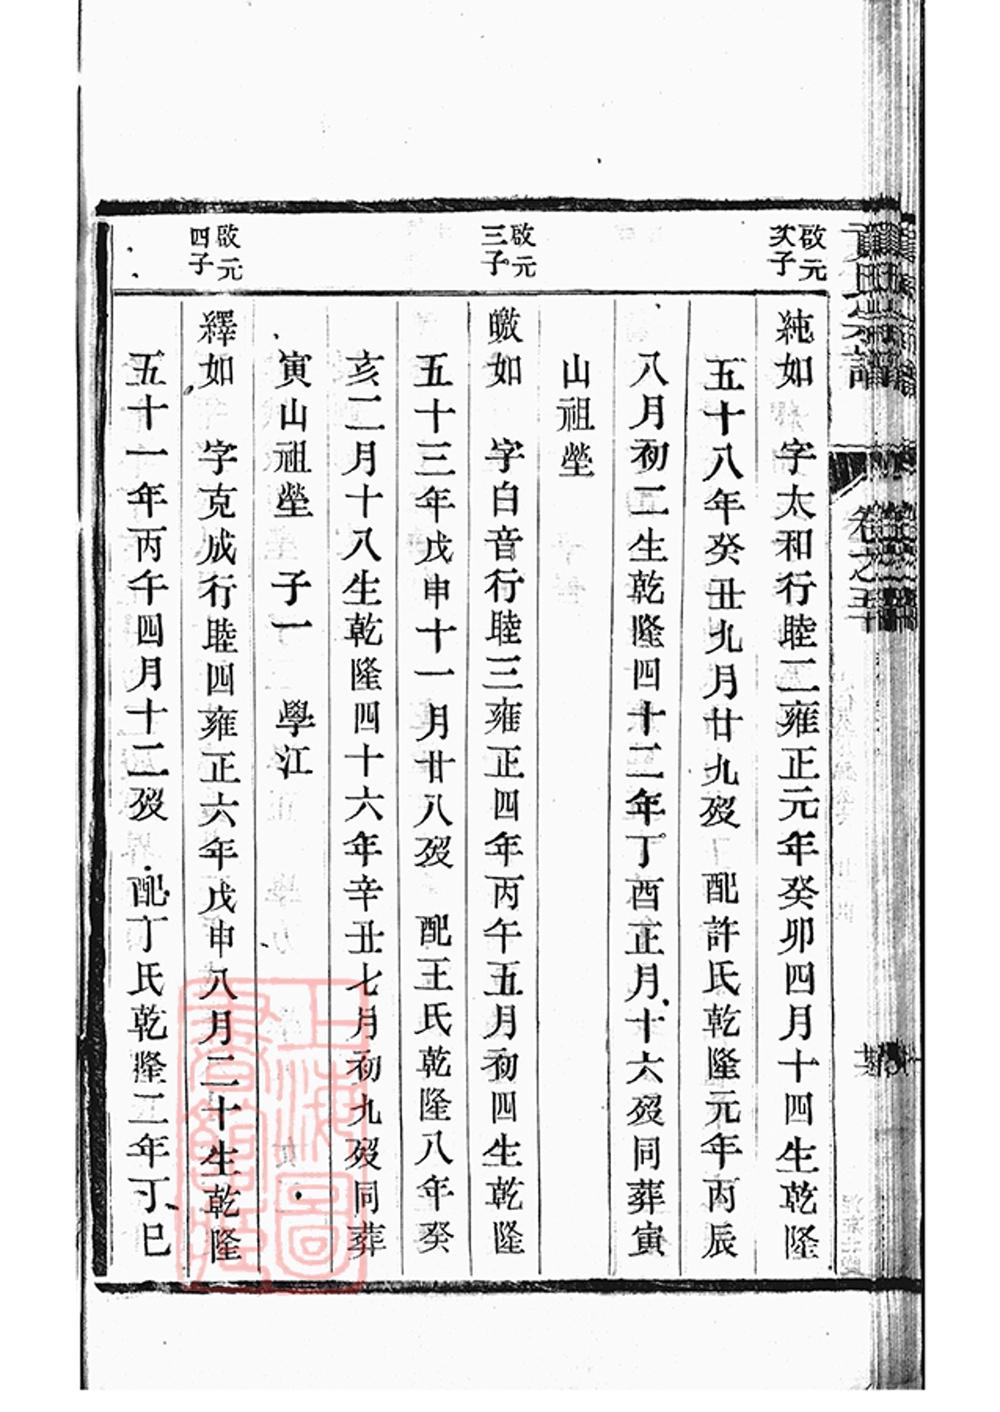 啟元
次子
純如　字太和行睦二雍正元年癸卯四月十四生乾隆
五十八年癸丑九月廿九歿　配許氏乾隆元年丙辰
八月初二生乾隆四十二年丁酉正月十六歿同葬寅
山祖塋
啟元
三子
皦如　字白音行睦三雍正四年丙午五月初四生乾隆
五十三年戊申十一月廿八歿　配王氏乾隆八年癸
亥二月十八生乾隆四十六年辛丑七月初九歿同葬
寅山祖塋　子一　學江
啟元
四子
繹如　字克成行睦四雍正六年戊申八月二十生乾隆
五十一年丙午四月十二歿　配丁氏乾隆二年丁巳
上海圖書館藏